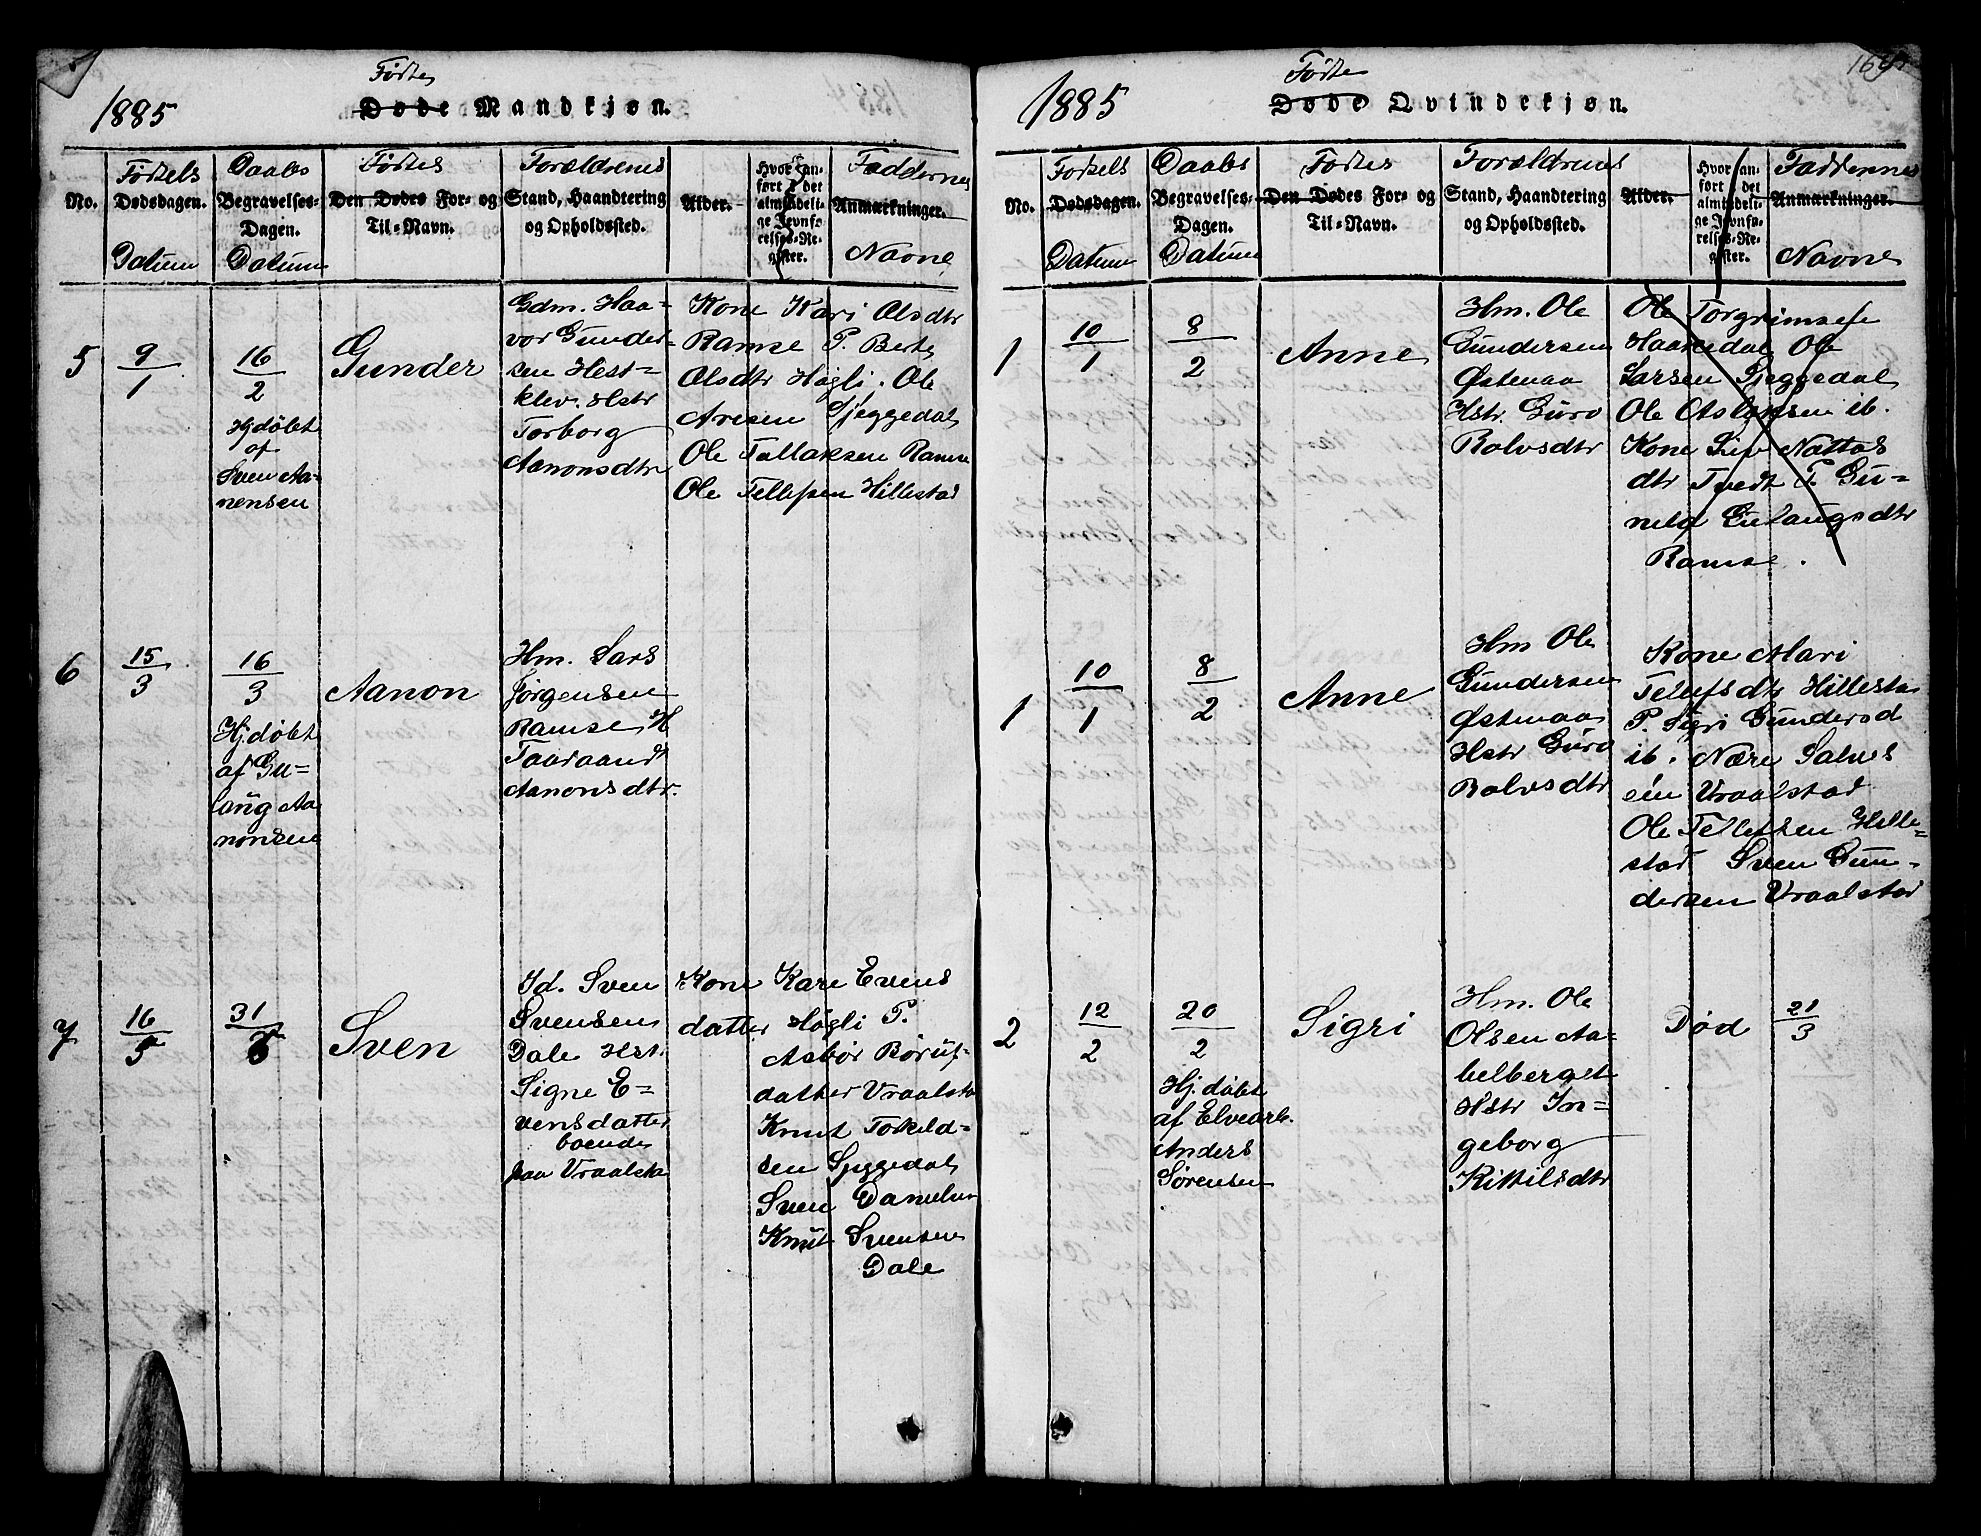 1885
Fødte
Døde Mandkjøn.
No.
Fødsels
Dødsdagen.
Datum
Daabs
Begravelses-
Dagen.
Datum
Fødtes
Den Dødes For- og
Til-Navn.
Forældrenes
Stand, Haandtering
og Opholdssted.
Alder.
Hvor an-
ført i det
almindeli-
ge Jevnfø-
relses-Re-
gister.
Faddernes
Anmærkninger.
Navne
5
9/1
16/2
Hjdøbt
af
Sven Aa-
nensen
Gunder
Gdm. Haa-
vor Gunder-
sen Hest-
klev. Hstr
Torborg
Aanonsdtr
Kone Kari Olsdtr
Ramse P. Berte
Olsdtr Høgli. Ole
Aresen Sjeggedal
Ole Tallaksen Ramse
Ole Tellefsen Hillestad
6
15/3
16/3
Hjdøbt
af Gu-
laug Aa-
nonsen
Aanon
Hm. Lars
Jørgensen
Ramse H
Taaraandt
Aanonsdtr.
7
16/5
31/5
Sven
Id. Sven
Svensen
Dale Hstr
Signe E-
vensdatter
boende
paa Vraalsta
Kone Kare Evens
datter Høgli P.
Asbør Børuf-
datter Vraalsta
Knut Torkeld-
sen Sjeggedal
Sven Danielsen
Knut Svensen
Dale
169
1885
Fødte
Døde Qvindekjøn.
No.
Fødsels
Dødsdagen.
Datum
Daabs
Begravelses-
Dagen.
Datum
Fødtes
Den Dødes For- og
Til-Navn.
Forældrenes
Stand, Haandtering
og Opholdssted.
Alder.
Hvor an-
ført i det
almindeli-
ge Jevnfø-
relses-Re-
gister.
Faddernes
Anmærkninger.
Navne
1
10/1
8/2
Anne
Hm. Ole
Gundersen
Østenaa
Hstr. Guro
Rolvsdtr
Ole Torgrimsen
Haakedal Ole
Larsen Sjeggedal
Ole Aslaksen ib.
Kone Liv Nottos
dtr Tvedt P. Gu-
neld Gulaugsdtr
Ramse.
1
10/1
8/2
Anne
Hm Ole
Gundersen
Østenaa
Hstr Guro
Rolvsdtr
Kone Mari
Telefsdtr Hillesta
P. Sigri Gundersd
ib. Nære Salves
en Vraalstad
Ole Tellefsen Hille-
stad Sven Gun-
dersen Vraalstad
2
12/2
20/2
Hj. døbt
af Elvearb.
Anders
Sørensen
Sigri
Hm. Ole
Olsen Aa-
belberget
Hstr In-
geborg
Kittilsdtr
Død 21/3